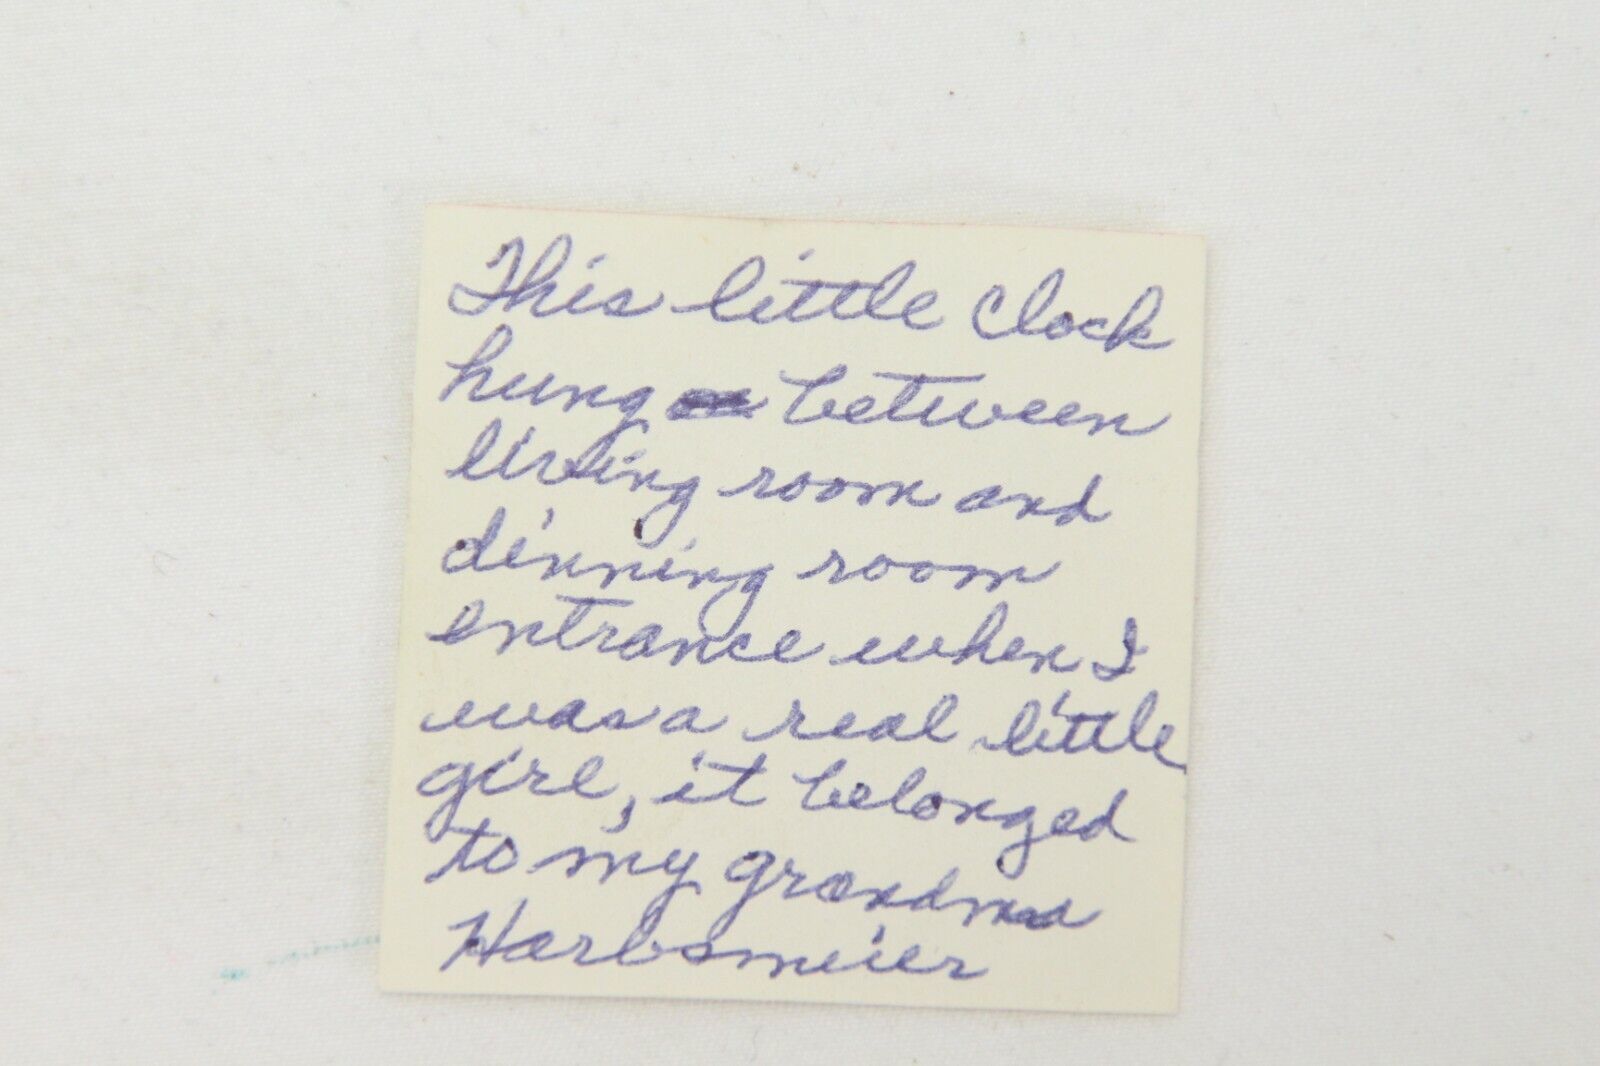 This little clock
hung between
living room and
dinning room
entrance when I
was a real little
girl, it belonged
to my grandma
Harbsmeier